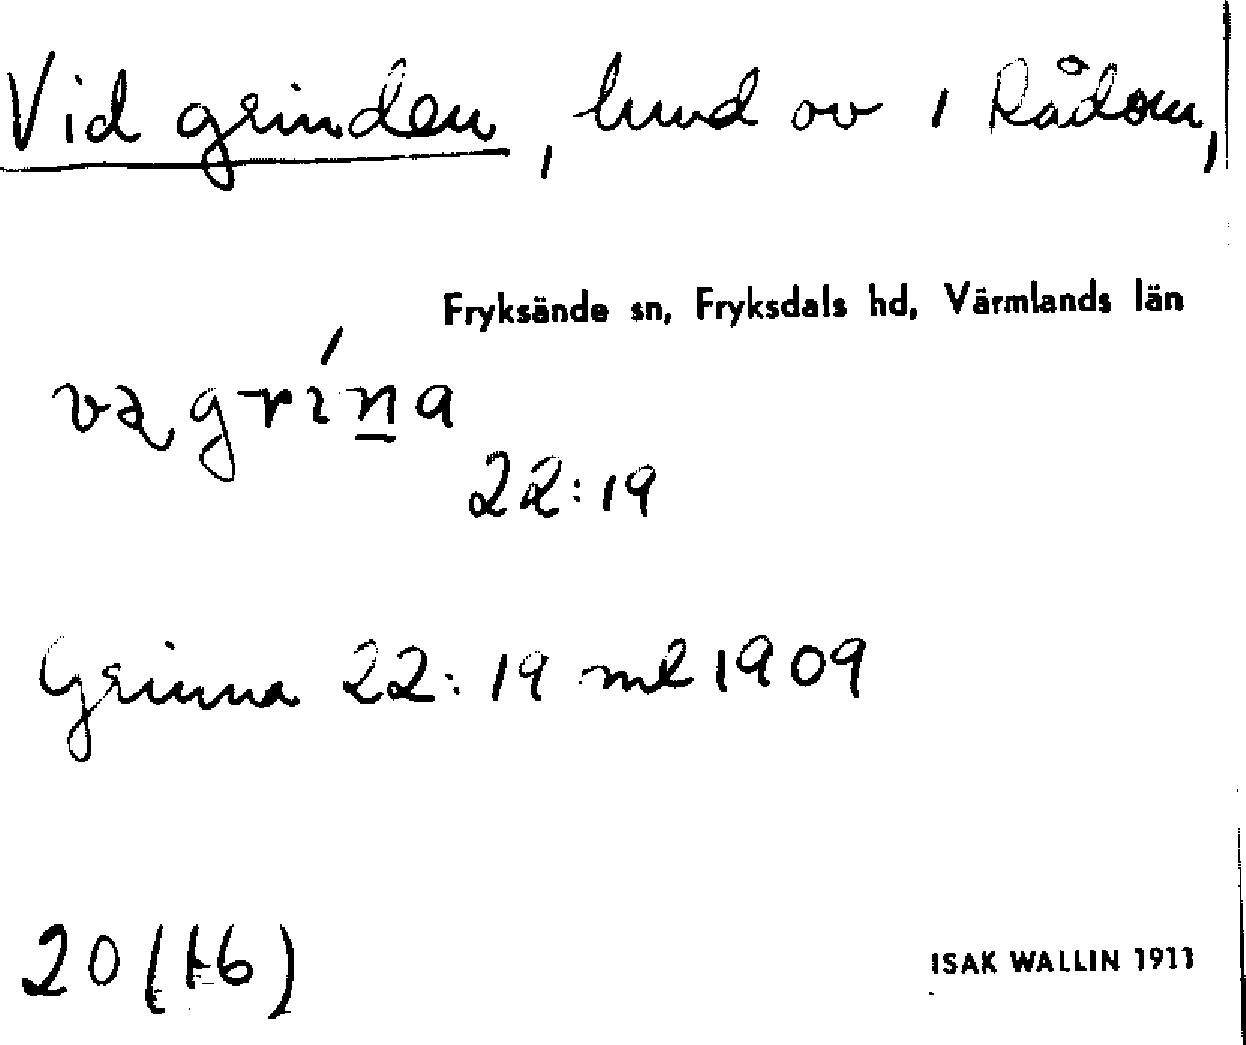 Vid grinden, hmd av 1 Rådom,
Fryksände sn, Fryksdals hd, Värmlands län
va grína
22:19
Grinna 22:19 ml 1909
20 (16)
ISAK WALLIN 1911